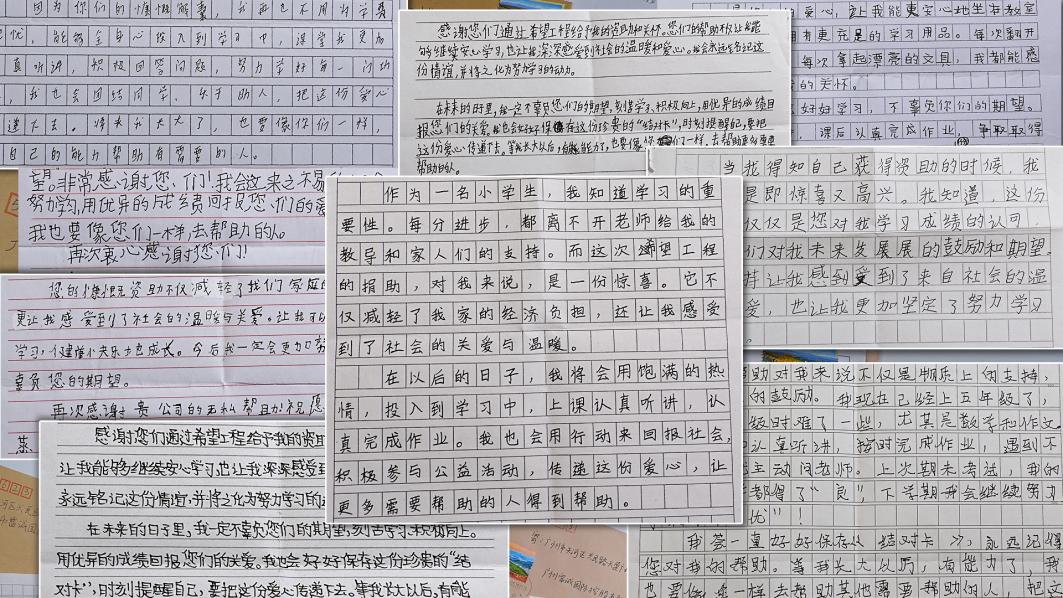 因为你们的慷慨解囊，我再也不用为学费
忧，能够全身心投入到学习中，课堂我更加
真听讲，积极回答问题，努力学好每一门功
，我也会团结同学、乐于助人，把这份爱心
递下去。将来我长大了，也要像你们一样，
自己的能力帮助有需要的人。
感谢您们通过希望工程给予我的资助和关怀。您们的帮助不仅让我能
够继续安心学习，也让我深深感受到社会的温暖和爱心。我会永远铭记这
份情谊，并将之化为努力学习的动力。
在未来的日子里，我一定不辜负您们的期望，刻苦学习、积极向上，用优异的成绩回
报您们的关爱。我也会好好保存这份珍贵的“结对卡”，时刻提醒自己，要把
这份爱心传递下去。等我长大以后，有能力了，也要像您们一样，去帮助更多需要
帮助的人。
爱心，让我能更安心地坐在教室
有更充足的学习用品。每次翻开
每次拿起漂亮的文具，我都能感
的关怀。
好好学习，不辜负你们的期望。
，课后认真完成作业，争取取得
望。非常感谢您、们！我会这来之不易
努力学习，用优异的成绩回报您、们的爱
我也要像您们一样，去帮助的人。
再次衷心感谢您们！
当我得知自己获得资助的时候，我
是即惊喜又高兴。我知道，这份
仅仅是您对我学习成绩的认可，
们对我未来发展展的鼓励和期望。
持让我感到受到了来自社会的温
爱，也让我更加坚定了努力学习
。
您的慷慨资助不仅减轻了我们家庭的
更让我感受到了社会的温暖与关爱。让我可以
学习，健康快乐地成长。今后我一定会更加努
辜负您的期望。
再次感谢贵公司的无私帮助祝愿
作为一名小学生，我知道学习的重
要性。每分进步，都离不开老师给我的
教导和家人们的支持。而这次希望工程
的捐助，对我来说，是一份惊喜。它不
仅减轻了我家的经济负担，还让我感受
到了社会的关爱与温暖。
在以后的日子，我将会用饱满的热
情，投入到学习中，上课认真听讲，认
真完成作业。我也会用行动来回报社会，
积极参与公益活动，传递这份爱心，让
更多需要帮助的人得到帮助。
感谢您们通过希望工程给予我的资助
让我能够继续安心学习，也让我深深感受到
永远铭记这份情谊，并将之化为努力学习的
在未来的日子里，我一定不辜负您们的期望，刻苦学习、积极向上。
用优异的成绩回报您们的关爱。我也会好好保存这份珍贵的“结
对卡”，时刻提醒自己，要把这份爱心传递下去。等我长大以后，有能
助对我来说不仅是物质上的支持，
的鼓励。我现在已经上五年级了，
级时难了一些，尤其是数学和作文。
认真听讲，按时完成作业，遇到不
主动问老师。上次期末考试，我的
都得了“良”，下学期我会继续努力
优”！
我会一直好好保存《结对卡》，永远记得
您对我的帮助。等我长大以后，有能力了，我
也要像您一样去帮助其他需要帮助的人，把